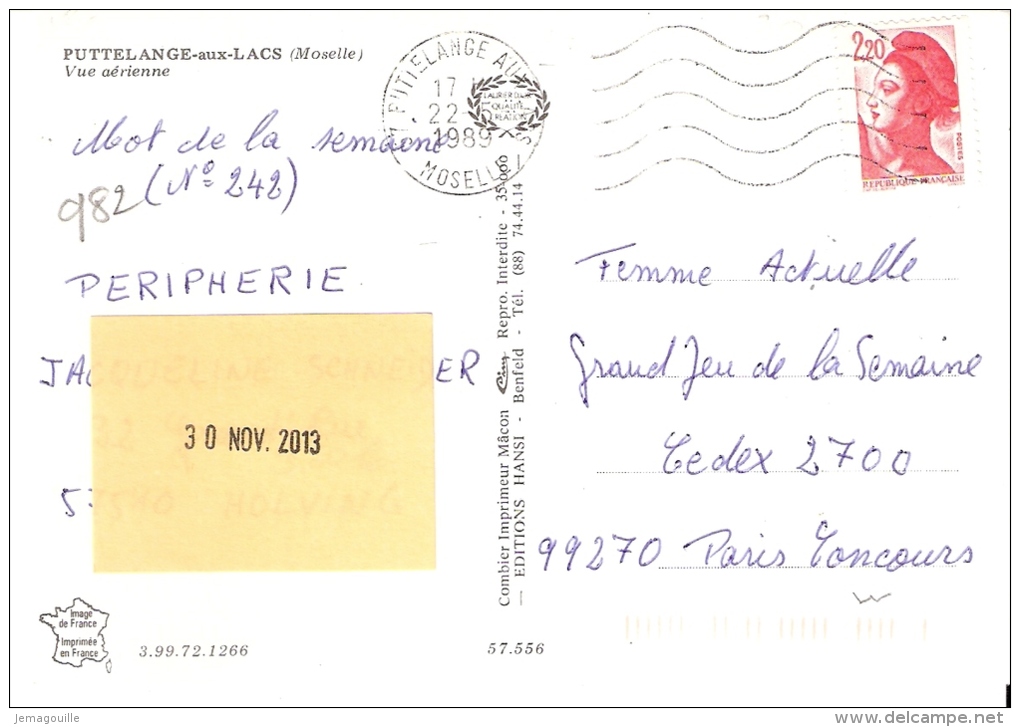 PUTTELANGE-aux-LACS (Moselle)
Vue aérienne
Mot de la semaine
(N° 242)
982
PERIPHERIE
JACQUELINE SCHNEIDER
30 NOV. 2013
Image
de France
Imprimée
en France
3.99.72.1266
57.556
Combier Imprimeur Mâcon Repro. Interdite - 35 000
— EDITIONS HANSI - Benfeld - Tél. (88) 74.44.14 —
PUTTELANGE AUX
17
22-5
1989
MOSELLE
QUALITE
2,20
POSTES
REPUBLIQUE FRANÇAISE
Femme Actuelle
Grand Jeu de la Semaine
Cedex 2700
99270 Paris Concours
Jemagouille
www.delcampe.net